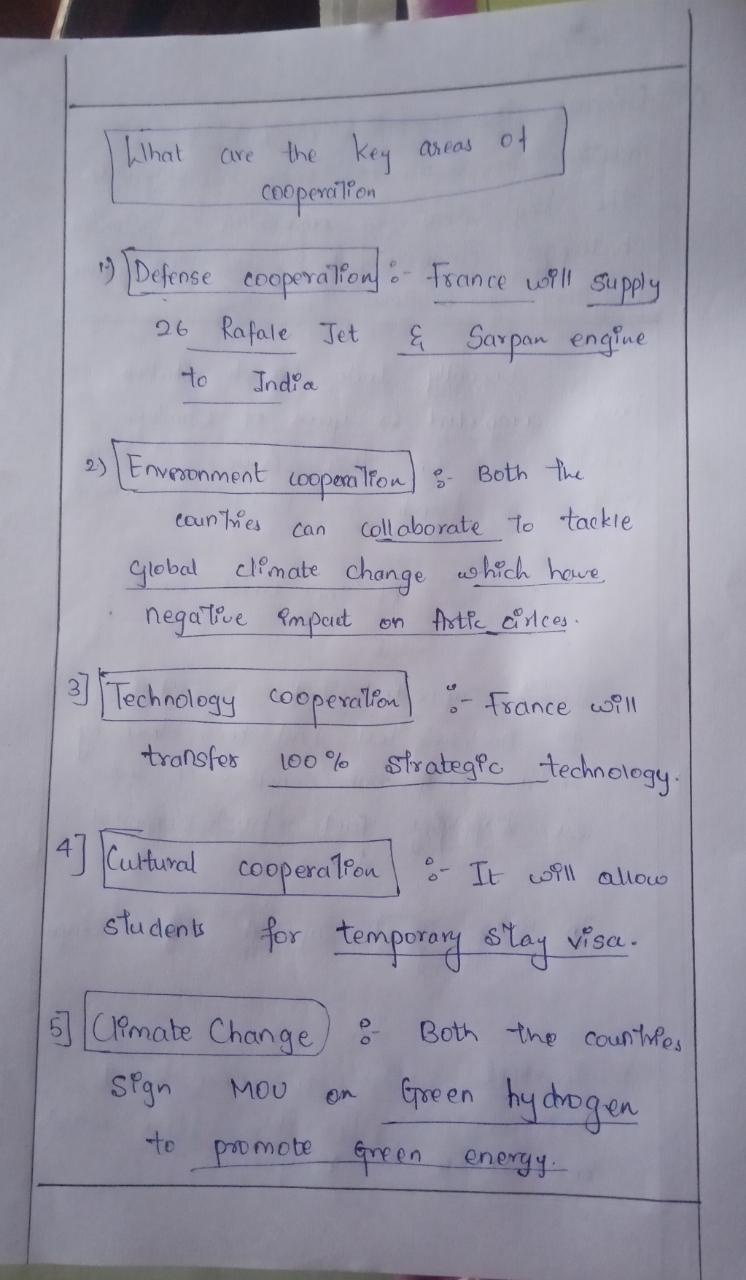 What are the key areas of
cooperation
1) Defense cooperation :- France will supply
26 Rafale Jet & Sarpan engine
to India
2) Enveronment cooperation :- Both the
countries can collaborate to tackle
global climate change which have
negative impact on Artic cirlces.
3] Technology cooperation :- France will
transfer 100% strategic technology.
4] Cultural cooperation :- It will allow
students for temporary stay visa.
5] Climate Change :- Both the countries
sign MOU on Green hydrogen
to promote green energy.